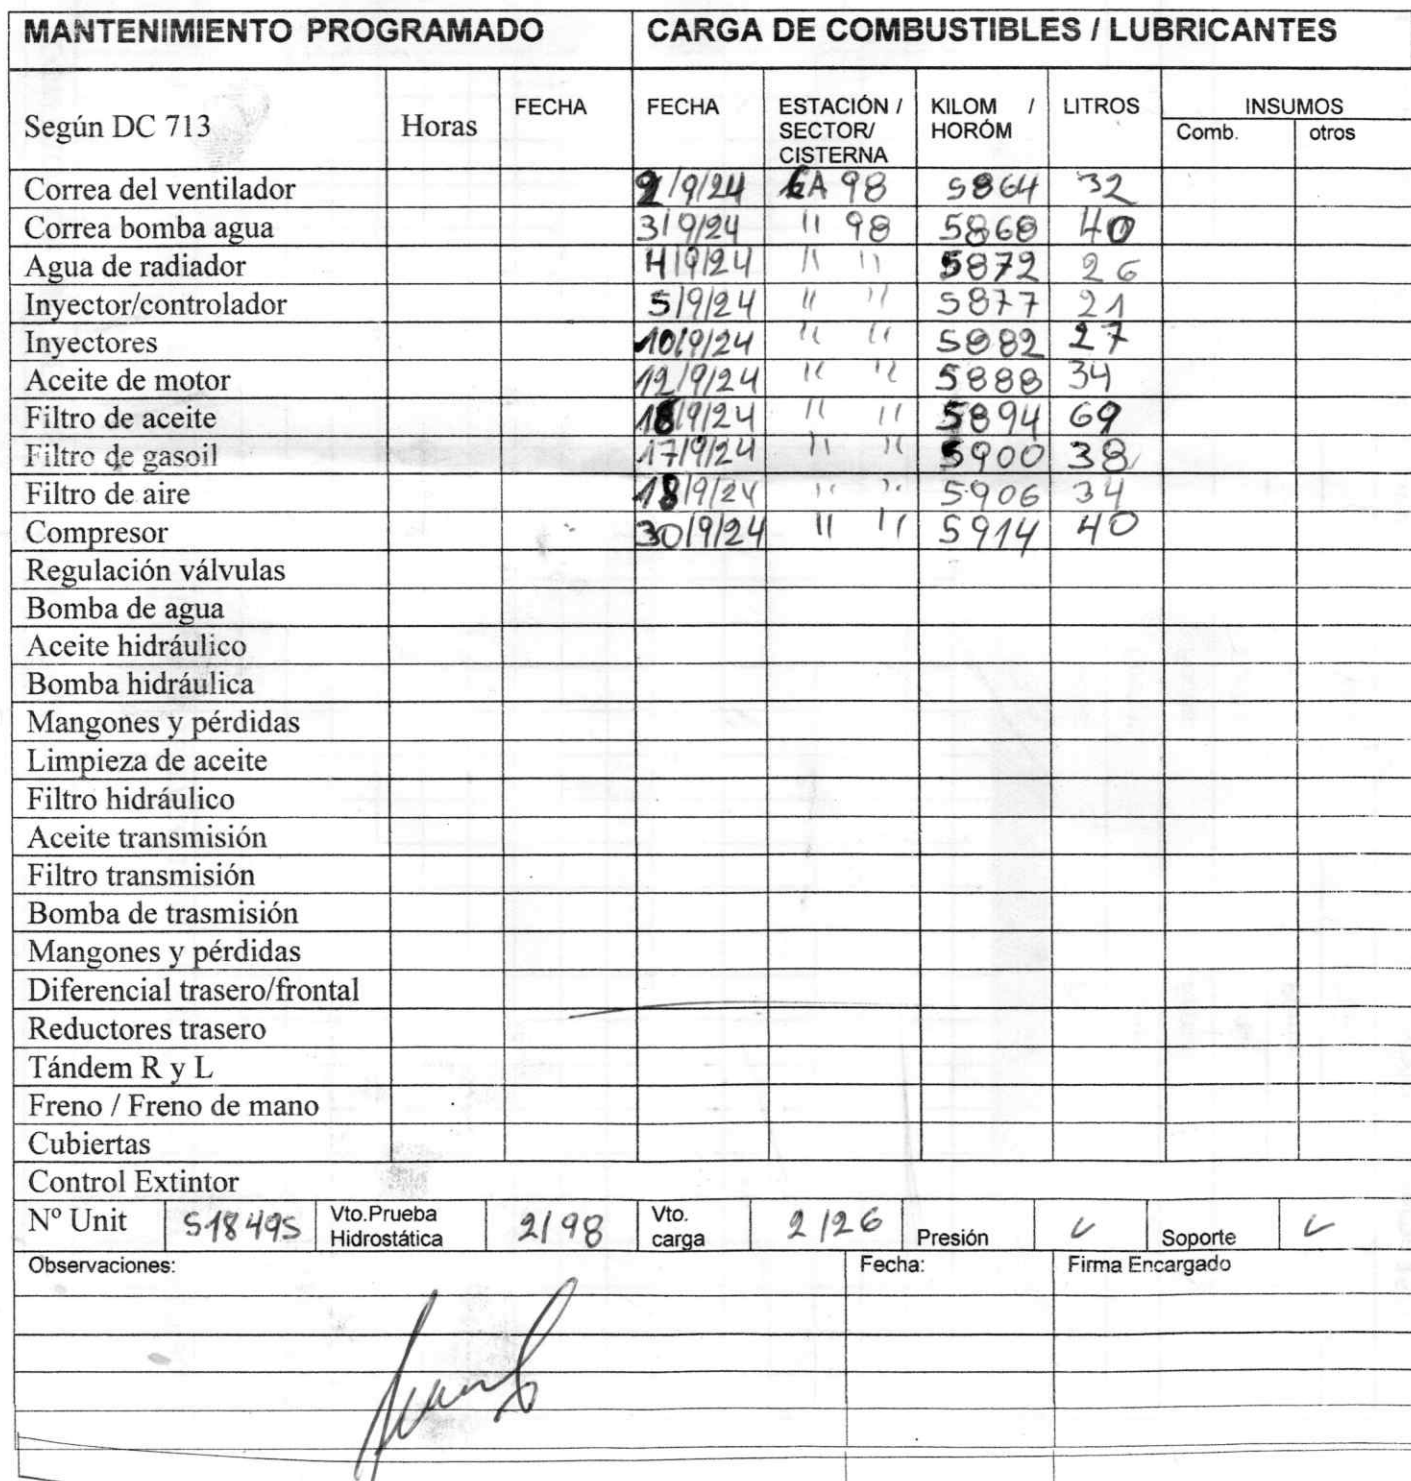 MANTENIMIENTO PROGRAMADO CARGA DE COMBUSTIBLES / LUBRICANTES
Según DC 713 Horas FECHA FECHA ESTACIÓN / SECTOR/ CISTERNA KILOM / HORÓM LITROS INSUMOS Comb. otros
Correa del ventilador 2/9/24 98 5864 32
Correa bomba agua 3/9/24 " 98 5868 40
Agua de radiador 4/9/24 " " 5872 26
Inyector/controlador 5/9/24 " " 5877 21
Inyectores 10/9/24 " " 5882 27
Aceite de motor 12/9/24 " " 5888 34
Filtro de aceite " " 5894 69
Filtro de gasoil 17/9/24 " " 5900 38
Filtro de aire 18/9/24 " " 5906 34
Compresor 30/9/24 " " 5914 40
Regulación válvulas
Bomba de agua
Aceite hidráulico
Bomba hidráulica
Mangones y pérdidas
Limpieza de aceite
Filtro hidráulico
Aceite transmisión
Filtro transmisión
Bomba de trasmisión
Mangones y pérdidas
Diferencial trasero/frontal
Reductores trasero
Tándem R y L
Freno / Freno de mano
Cubiertas
Control Extintor
Nº Unit 518495 Vto.Prueba Hidrostática 2/98 Vto. carga 2/26 Presión ✓ Soporte ✓
Observaciones: Fecha: Firma Encargado